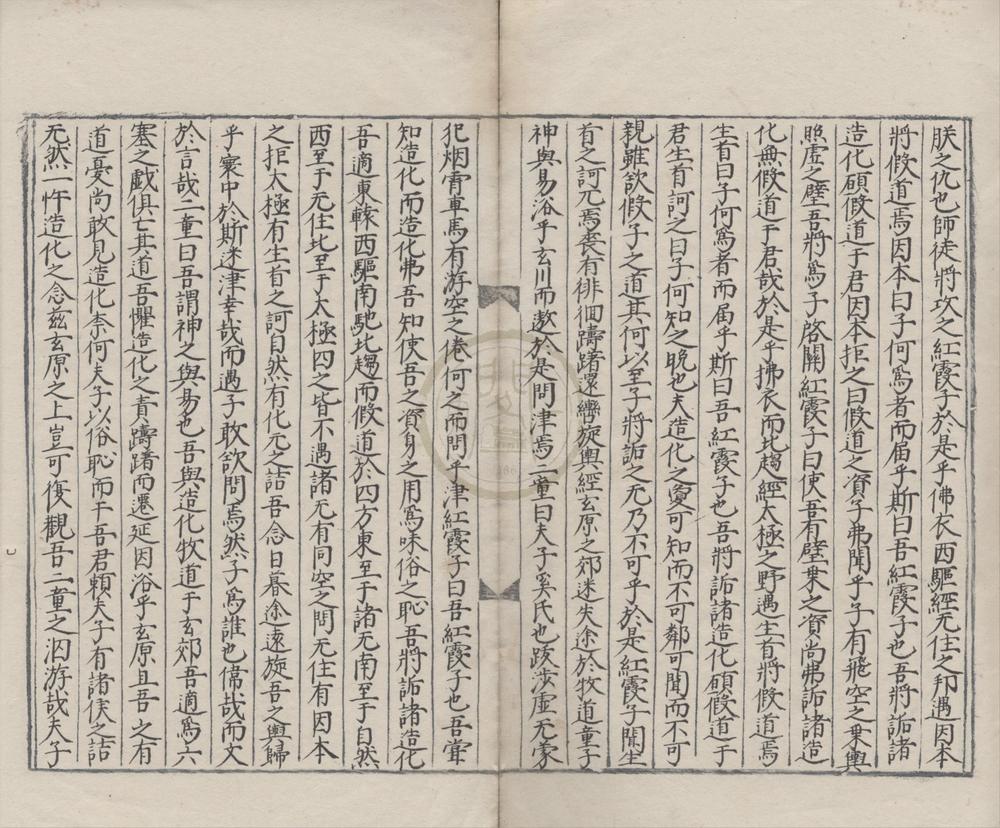 朕之仇也師徒將攻之紅霞子於是乎佛衣西驅經无住之邦遇因本
將假道焉因本曰子何爲者而届乎斯曰吾紅霞子也吾將詬諸
造化碩假道于君因本拒之曰假道之資子弗聞乎子有飛空之乗輿
照虚之壁吾將爲子啓關紅霞子曰使吾有壁乗之資尚弗詬諸造
化無假道于君哉於是乎拂衣而北趨經太極之野遇生首將假道焉
生首曰子何爲者而届乎斯曰吾紅霞子也吾將詬諸造化碩假道于
君生首訶之曰子何知之晚也夫造化之夐可知而不可鄰可聞而不可
親雖欲假子之道其何以至子將詬之无乃不可乎於是紅霞子聞生
首之訶亢焉丧有徘徊躊躇還轡旋輿經玄原之郊迷失途於牧道童子
神與易浴乎玄川而遨於是問津焉二童曰夫子奚氏也跋涉虚无蒙
犯烟霄車馬有游空之倦何之而問乎津紅霞子曰吾紅霞子也吾甞
知造化而造化弗吾知使吾之資身之用爲味俗之恥吾將詬諸造化
吾適東轅西驅南馳北趨而假道於四方東至于諸无南至于自然
西至于无住北至于太極四之皆不遇諸无有同空之問无住有因本
之拒太極有生首之訶自然有化元之詰吾念日暮途遠旋吾之輿歸
乎寰中於斯迷津幸哉而遇子敢欲問焉然子爲誰也儒哉而文
於言哉二童曰吾謂神之與易也吾與造化牧道于玄郊吾適爲六
塞之戯俱亡其道吾懼造化之責躊躇而遷延因浴乎玄原且吾之有
道憂尚敢見造化柰何夫子以俗恥而干吾君頼夫子有諸侯之詰
无然一忤造化之念兹玄原之上豈可復觀吾二童之泅游哉夫子